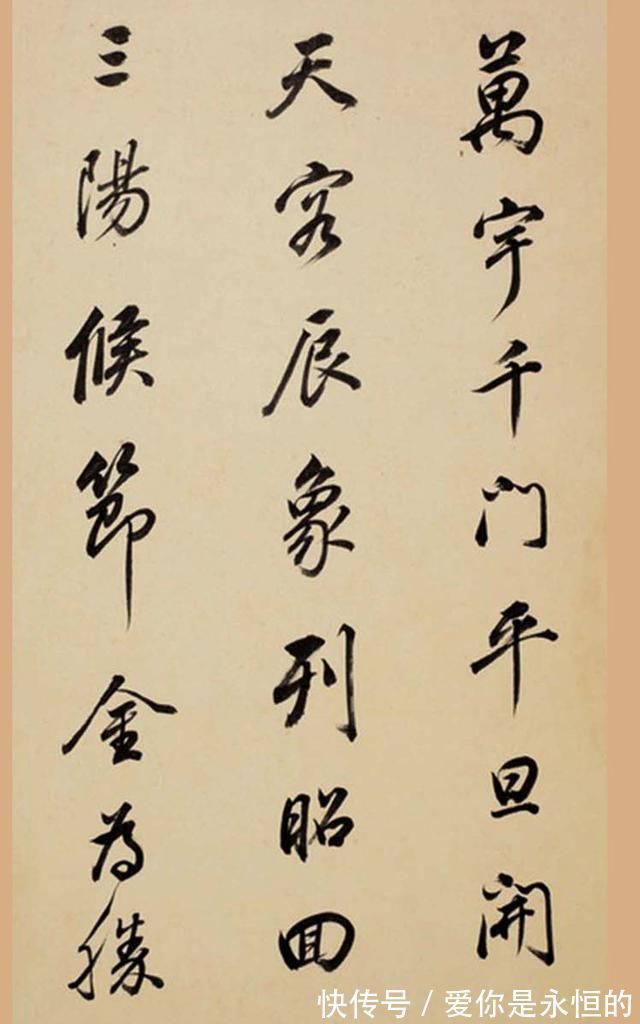 萬宇千門平旦開
天容辰象列昭回
三陽候節金為勝
快传号/爱你是永恒的